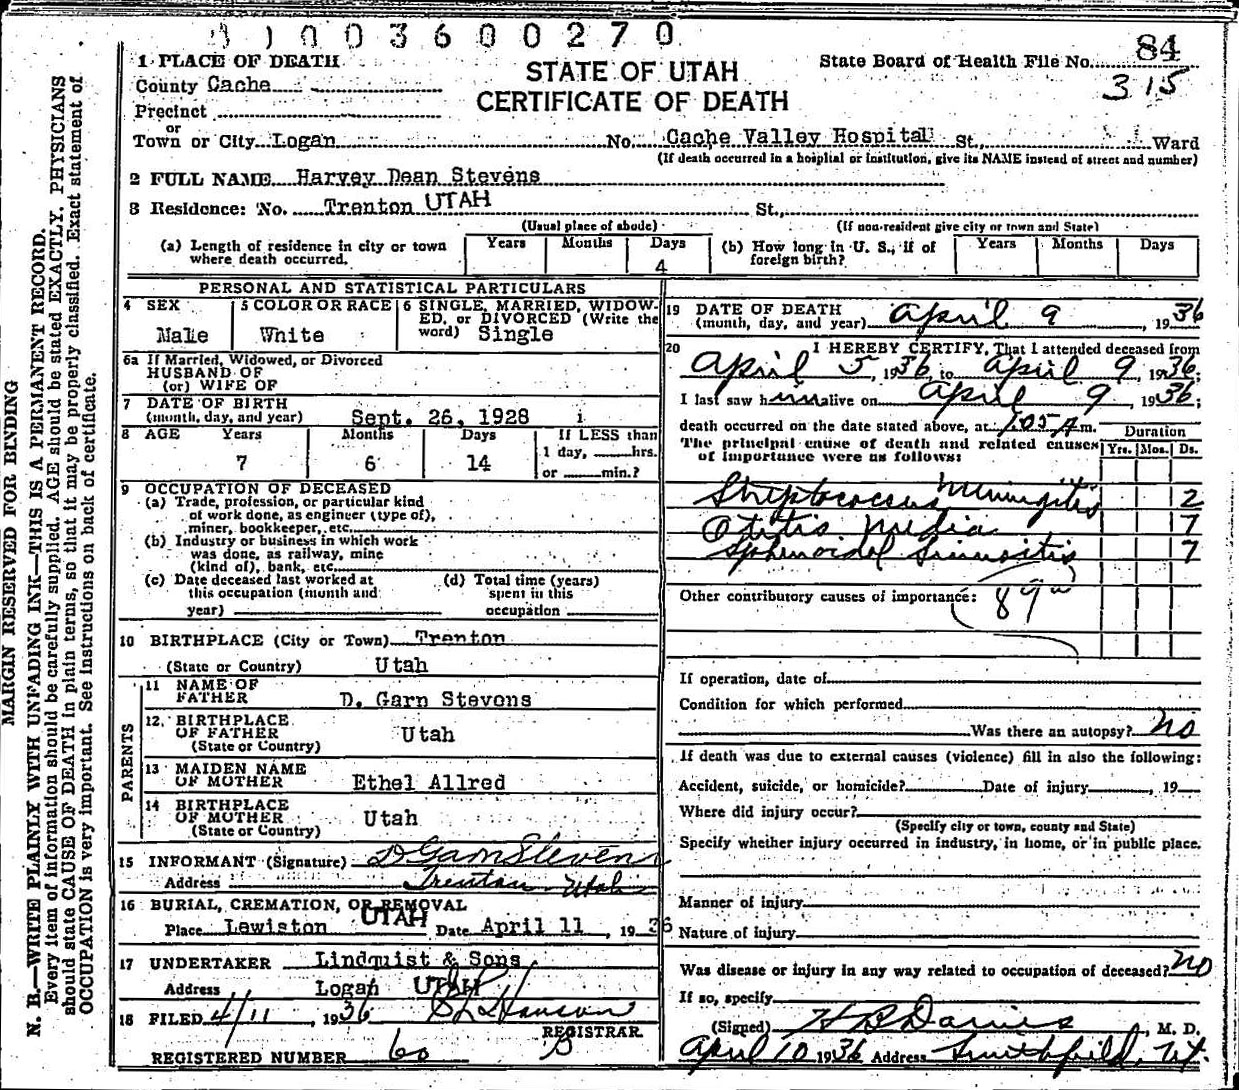 0 1 0 0 3 6 0 0 2 7 0
1 PLACE OF DEATH
County Cache
Precinct
or
Town or City Logan
STATE OF UTAH
CERTIFICATE OF DEATH
State Board of Health File No. 84
315
No. Cache Valley Hospital St., Ward
(If death occurred in a hospital or institution, give its NAME instead of street and number)
2 FULL NAME Harvey Dean Stevens
3 Residence: No. Trenton UTAH St.,
(Usual place of abode) (If non-resident give city or town and State)
(a) Length of residence in city or town where death occurred. Years Months Days 4
(b) How long in U. S., if of foreign birth? Years Months Days
PERSONAL AND STATISTICAL PARTICULARS
4 SEX Male
5 COLOR OR RACE White
6 SINGLE, MARRIED, WIDOW-
ED, or DIVORCED (Write the
word) Single
6a If Married, Widowed, or Divorced
HUSBAND OF
(or) WIFE OF
7 DATE OF BIRTH
(month, day, and year) Sept. 26, 1928
8 AGE Years Months Days If LESS than
7 6 14 1 day, hrs.
or min.?
9 OCCUPATION OF DECEASED
(a) Trade, profession, or particular kind
of work done, as engineer (type of),
miner, bookkeeper, etc.
(b) Industry or business in which work
was done, as railway, mine
(kind of), bank, etc.
(c) Date deceased last worked at
this occupation (month and
year)
(d) Total time (years)
spent in this
occupation
10 BIRTHPLACE (City or Town) Trenton
(State or Country) Utah
PARENTS
11 NAME OF
FATHER D. Garn Stevens
12. BIRTHPLACE
OF FATHER Utah
(State or Country)
13 MAIDEN NAME
OF MOTHER Ethel Allred
14 BIRTHPLACE
OF MOTHER Utah
(State or Country)
15 INFORMANT (Signature) D Garn Stevens
Address Trenton Utah
16 BURIAL, CREMATION, OR REMOVAL
Place Lewiston UTAH Date April 11, 1936
17 UNDERTAKER Lindquist & Sons
Address Logan UTAH
18 FILED 4/11, 1936 Hanson
REGISTRAR
REGISTERED NUMBER 60 B
19 DATE OF DEATH
(month, day, and year) April 9, 1936
20 I HEREBY CERTIFY, That I attended deceased from
April 5, 1936, to April 9, 1936;
I last saw him alive on April 9, 1936;
death occurred on the date stated above, at 1:05 A m.
The principal cause of death and related causes
of importance were as follows:
Duration
Yrs. Mos. Ds.
Streptococcus Meningitis 2
Otitis Media 7
Sphenoidal Sinusitis 7
Other contributory causes of importance: 89a
If operation, date of
Condition for which performed
Was there an autopsy? no
If death was due to external causes (violence) fill in also the following:
Accident, suicide, or homicide? Date of injury , 19
Where did injury occur?
(Specify city or town, county and State)
Specify whether injury occurred in industry, in home, or in public place.
Manner of injury
Nature of injury
Was disease or injury in any way related to occupation of deceased? no
If so, specify
(Signed) Davies, M. D.
April 10 1936 Address Smithfield, Ut.
MARGIN RESERVED FOR BINDING
N. B.—WRITE PLAINLY WITH UNFADING INK—THIS IS A PERMANENT RECORD.
Every item of information should be carefully supplied. AGE should be stated EXACTLY. PHYSICIANS
should state CAUSE OF DEATH in plain terms, so that it may be properly classified. Exact statement of
OCCUPATION is very important. See instructions on back of certificate.